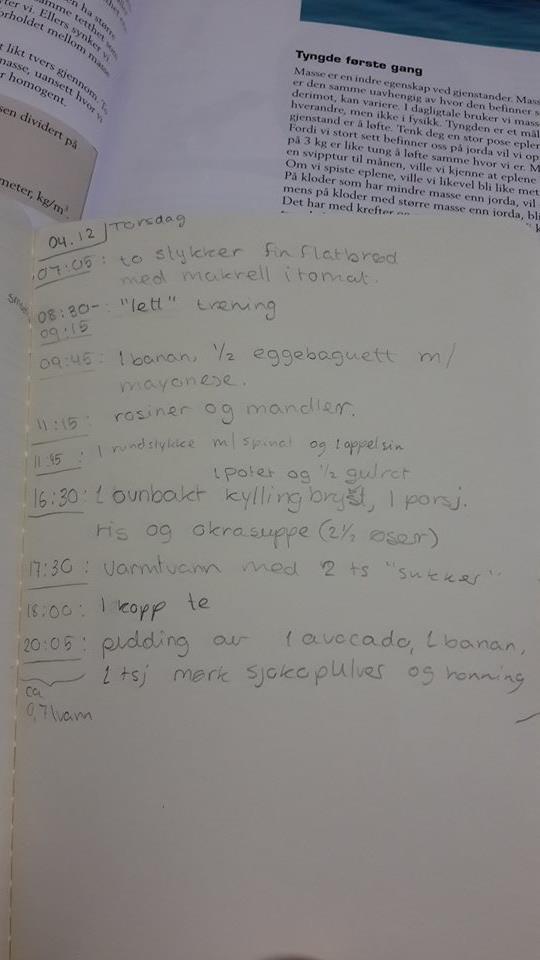 samme tetthet som
ter vi. Ellers synker vi
forholdet mellom masse
t likt tvers gjennom.
masse, uansett hvor vi
r homogent.
sen dividert på
meter, kg/m³
Tyngde første gang
Masse er en indre egenskap ved gjenstander. Mass
er den samme uavhengig av hvor den befinner s
derimot, kan variere. I dagligtale bruker vi mass
hverandre, men ikke i fysikk. Tyngden er et mål
gjenstand er å løfte. Tenk deg en stor pose epler
Fordi vi stort sett befinner oss på jorda vil vi op
på 3 kg er like tung å løfte samme hvor vi er. M
en svipptur til månen, ville vi kjenne at eplene
Om vi spiste eplene, ville vi likevel bli like met
På kloder som har mindre masse enn jorda, vil
mens på kloder med større masse enn jorda, bli
Det har med krefter
04.12 Torsdag
07:05: to stykker fin flatbrød
med makrell i tomat.
08:30- : "lett" trening
09:15
09:45: 1 banan, 1/2 eggebaguett m/
mayonese.
11:15: rosiner og mandler.
11:45: 1 rundstykke m/spinat og 1 appelsin
1 potet og 1/2 gulrot
16:30: 1 ovnbakt kyllingbryst, 1 porsj.
ris og okrasuppe (2 1/2 øser)
17:30: varmtvann med 2 ts "sukker"
18:00: 1 kopp te
20:05: pudding av 1 avocado, 1 banan,
1 tsj mørk sjokopulver og honning
ca
0,7 l vann